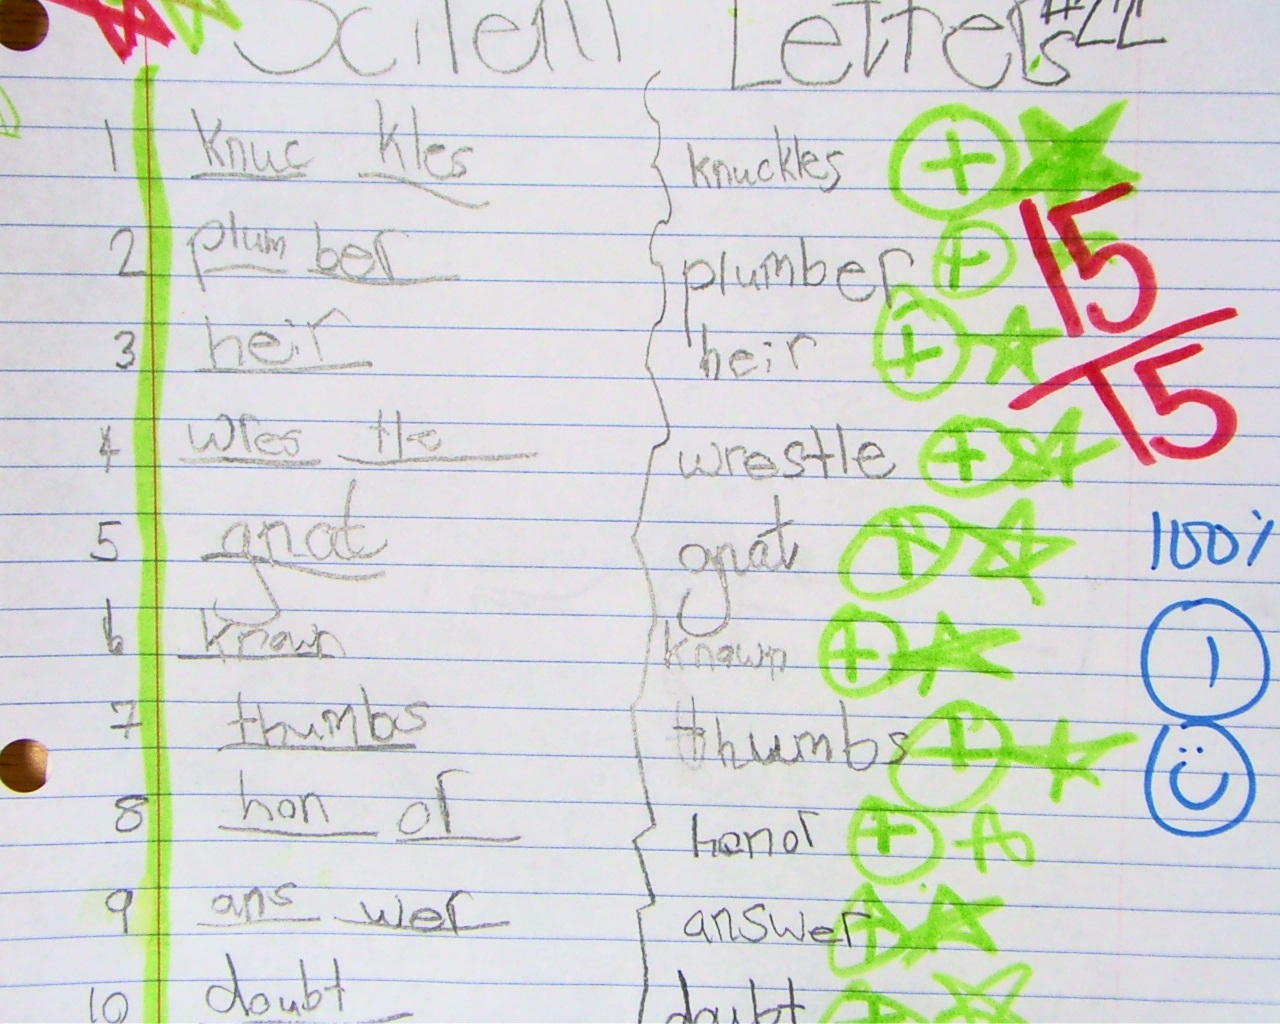 Scilent Letters #22
1 Knuc kles knuckles +
2 plum ber plumber +
15
3 heir heir +
15
4 wres tle wrestle +
5 gnat gnat +
100%
6 known known +
1
7 thumbs thumbs +
8 hon or honor +
9 ans wer answer +
10 doubt doubt +